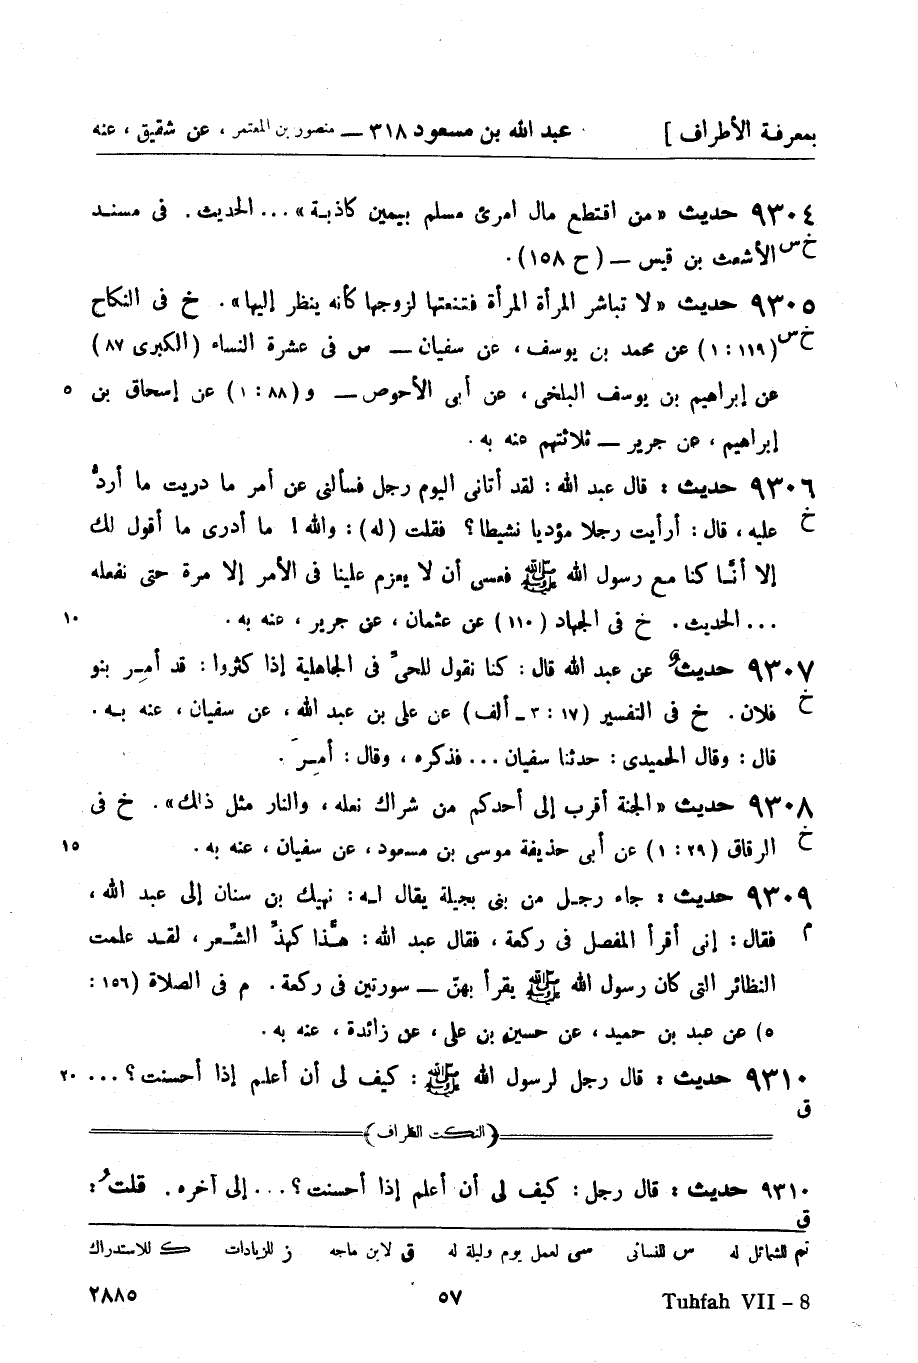 بمعرفة الأطراف ] عبد الله بن مسعود ٣١٨ — منصور بن المعتمر ، عن شقيق ، عنه
٩٣٠٤ حديث «من اقتطع مال امرئ مسلم بيمين كاذبة» ... الحديث . فى مسند
خ س الأشعث بن قيس — (ح ١٥٨) .
٩٣٠٥ حديث «لا تباشر المرأة المرأة فتنعتها لزوجها كأنه ينظر إليها» . خ فى النكاح
خ س (١١٩ : ١) عن محمد بن يوسف ، عن سفيان — س فى عشرة النساء (الكبرى ٨٧)
عن إبراهيم بن يوسف البلخى ، عن أبى الأحوص — و(٨٨ : ١) عن إسحاق بن ٥
إبراهيم ، عن جرير — ثلاثتهم عنه به .
٩٣٠٦ حديث : قال عبد الله : لقد أتانى اليوم رجل فسألنى عن أمر ما دريت ما أردّ
خ عليه ، قال : أرأيت رجلا مؤديا نشيطا ؟ فقلت (له) : والله ! ما أدرى ما أقول لك
إلا أنّا كنا مع رسول الله ﷺ فعسى أن لا يعزم علينا فى الأمر إلا مرة حتى نفعله
... الحديث . خ فى الجهاد (١١٠) عن عثمان ، عن جرير ، عنه به . ١٠
٩٣٠٧ حديث عن عبد الله قال : كنا نقول للحىّ فى الجاهلية إذا كثروا : قد أمِر بنو
خ فلان . خ فى التفسير (١٧ : ٣ - ألف) عن على بن عبد الله ، عن سفيان ، عنه به .
قال : وقال الحميدى : حدثنا سفيان ... فذكره ، وقال : أمِرَ .
٩٣٠٨ حديث «الجنة أقرب إلى أحدكم من شراك نعله ، والنار مثل ذالك» . خ فى
خ الرقاق (٢٩ : ١) عن أبى حذيفة موسى بن مسعود ، عن سفيان ، عنه به . ١٥
٩٣٠٩ حديث : جاء رجل من بنى بجيلة يقال له : نهيك بن سنان إلى عبد الله ،
م فقال : إنى أقرأ المفصل فى ركعة ، فقال عبد الله : هذًّا كهذّ الشِّعر ، لقد علمت
النظائر التى كان رسول الله ﷺ يقرأ بهنّ — سورتين فى ركعة . م فى الصلاة (١٥٦ :
٥) عن عبد بن حميد ، عن حسين بن على ، عن زائدة ، عنه به .
٩٣١٠ حديث : قال رجل لرسول الله ﷺ : كيف لى أن أعلم إذا أحسنت ؟ ... ٢٠
ق
(النكت الظراف)
٩٣١٠ حديث : قال رجل : كيف لى أن أعلم إذا أحسنت ؟ ... إلى آخره . قلتُ :
ق
تم للشمائل له س للنسائى سى لعمل يوم وليلة له ق لابن ماجه ز للزيادات ك للاستدراك
٢٨٨٥ ٥٧ Tuhfah VII – 8